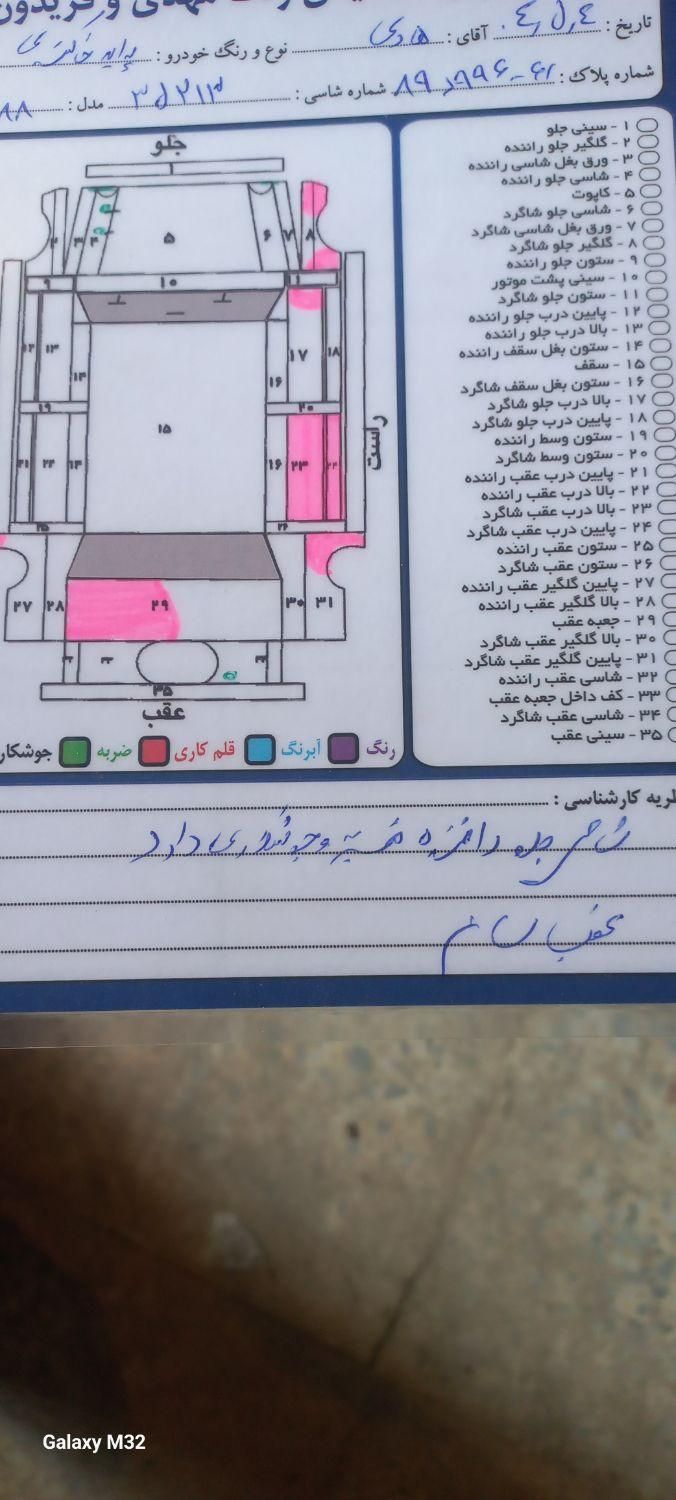 مهدی و فریدون
تاریخ : آقای : هادی نوع و رنگ خودرو : پراید خاکستری
شماره پلاک : شماره شاسی : مدل : ۸۸
۱ - سینی جلو
۲ - گلگیر جلو راننده
۳ - ورق بغل شاسی راننده
۴ - شاسی جلو راننده
۵ - کاپوت
۶ - شاسی جلو شاگرد
۷ - ورق بغل شاسی شاگرد
۸ - گلگیر جلو شاگرد
۹ - ستون جلو راننده
۱۰ - سینی پشت موتور
۱۱ - ستون جلو شاگرد
۱۲ - پایین درب جلو راننده
۱۳ - بالا درب جلو راننده
۱۴ - ستون بغل سقف راننده
۱۵ - سقف
۱۶ - ستون بغل سقف شاگرد
۱۷ - بالا درب جلو شاگرد
۱۸ - پایین درب جلو شاگرد
۱۹ - ستون وسط راننده
۲۰ - ستون وسط شاگرد
۲۱ - پایین درب عقب راننده
۲۲ - بالا درب عقب راننده
۲۳ - بالا درب عقب شاگرد
۲۴ - پایین درب عقب شاگرد
۲۵ - ستون عقب راننده
۲۶ - ستون عقب شاگرد
۲۷ - پایین گلگیر عقب راننده
۲۸ - بالا گلگیر عقب راننده
۲۹ - جعبه عقب
۳۰ - بالا گلگیر عقب شاگرد
۳۱ - پایین گلگیر عقب شاگرد
۳۲ - شاسی عقب راننده
۳۳ - کف داخل جعبه عقب
۳۴ - شاسی عقب شاگرد
۳۵ - سینی عقب
جلو
۱
۲ ۳ ۴ ۵ ۶ ۷ ۸
۹ ۱۰ ۱۱
۱۲ ۱۳ ۱۴ ۱۶ ۱۷ ۱۸
۱۹ ۱۵ ۲۰ راست
۲۱ ۲۲ ۱۴ ۱۶ ۲۳ ۲۴
۲۵ ۲۶
۲۷ ۲۸ ۲۹ ۳۰ ۳۱
۳۵
عقب
رنگ آبرنگ قلم کاری ضربه جوشکار
ظریه کارشناسی :
شاسی جلو راننده ضربه و جوشکاری دارد
عقب سالم
Galaxy M32